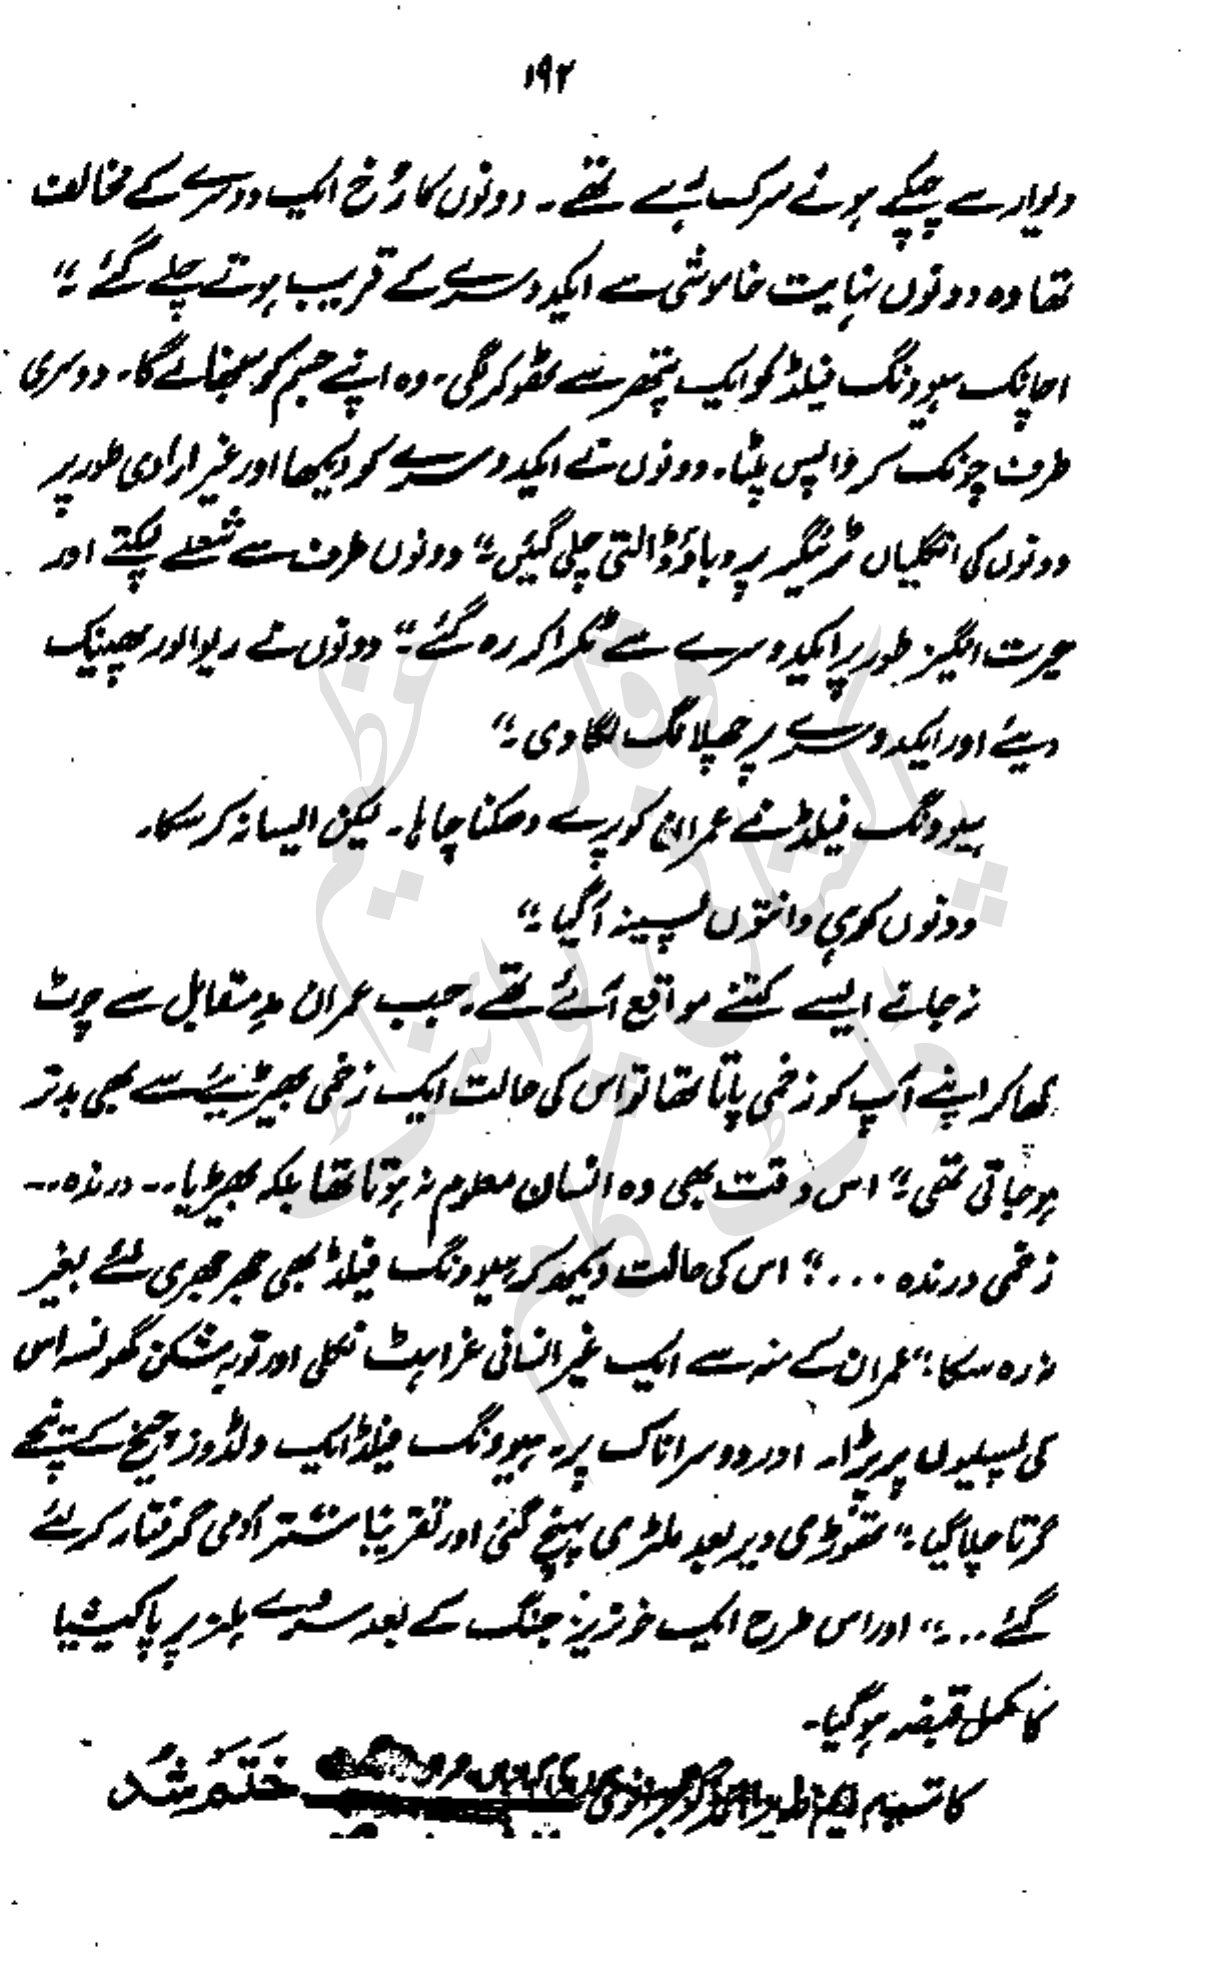 ۱۹۲
دیوار سے چپکے ہوئے سرک رہے تھے۔ دونوں کا رُخ ایک دوسرے کے مخالف
تھا وہ دونوں نہایت خاموشی سے ایکدوسرے کے قریب ہوتے چلے گئے۔"
اچانک ہیوونگ فیلڈ کو ایک پتھر سے ٹھوکر لگی۔ وہ اپنے جسم کو سنبھالنے لگا۔ دوسری
طرف چونک کر واپس پلٹا۔ دونوں نے ایکدوسرے کو دیکھا اور غیر ارادی طور پر
دونوں کی انگلیاں ٹریگر پر دباؤ ڈالتی چلی گئیں۔" دونوں طرف سے شعلے لپکتے اور
حیرت انگیز طور پر ایکدوسرے سے ٹکرا کر رہ گئے۔" دونوں نے ریوالور پھینک
دیئے اور ایکدوسرے پر چھلانگ لگا دی۔"
ہیوونگ فیلڈ نے عمران کو پرے دھکنا چاہا۔ لیکن ایسا نہ کر سکا۔
دونوں کو ہی دانتوں پسینہ آگیا۔"
نہ جانے ایسے کتنے مواقع آئے تھے۔ جب عمران مدِ مقابل سے چوٹ
کھا کر اپنے آپ کو زخمی پاتا تھا تو اس کی حالت ایک زخمی بھیڑیئے سے بھی بدتر
ہو جاتی تھی۔" اس وقت بھی وہ انسان معلوم نہ ہوتا تھا بلکہ بھیڑیا۔۔ درندہ۔۔
زخمی درندہ ....." اس کی حالت دیکھ کر ہیوونگ فیلڈ بھی جھرجھری لئے بغیر
نہ رہ سکا۔" عمران کے منہ سے ایک غیر انسانی غراہٹ نکلی اور توبہ شکن گھونسہ اس
کی پسلیوں پر پڑا۔ اور دوسرا ناک پر۔ ہیوونگ فیلڈ ایک دلدوز چیخ کے نیچے
گرتا چلا گیا۔" تھوڑی دیر بعد ملٹری پہنچ گئی اور تقریبا ستر آدمی گرفتار کر لئے
گئے ...." اور اس طرح ایک خونریز جنگ کے بعد سروے ہلز پر پاکیشیا
کا مکمل قبضہ ہو گیا۔
ختم شُد